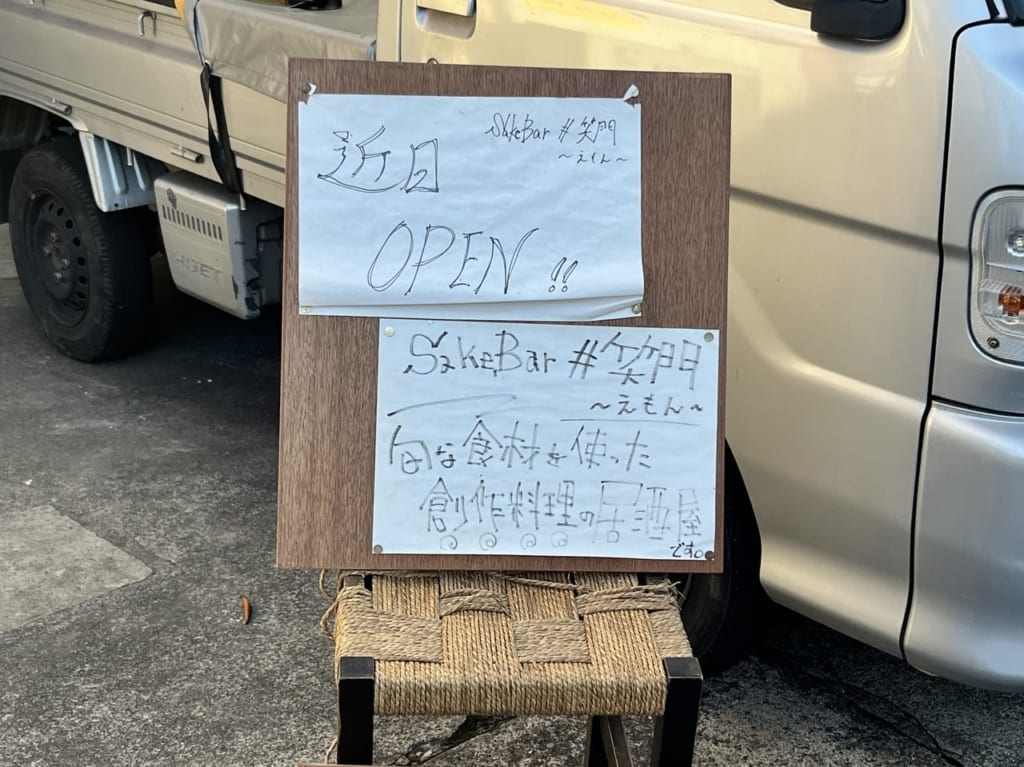 SakeBar #笑門
〜えもん〜
近日
OPEN !!
SakeBar #笑門
〜えもん〜
旬な食材を使った
創作料理の居酒屋
です。
HIJET